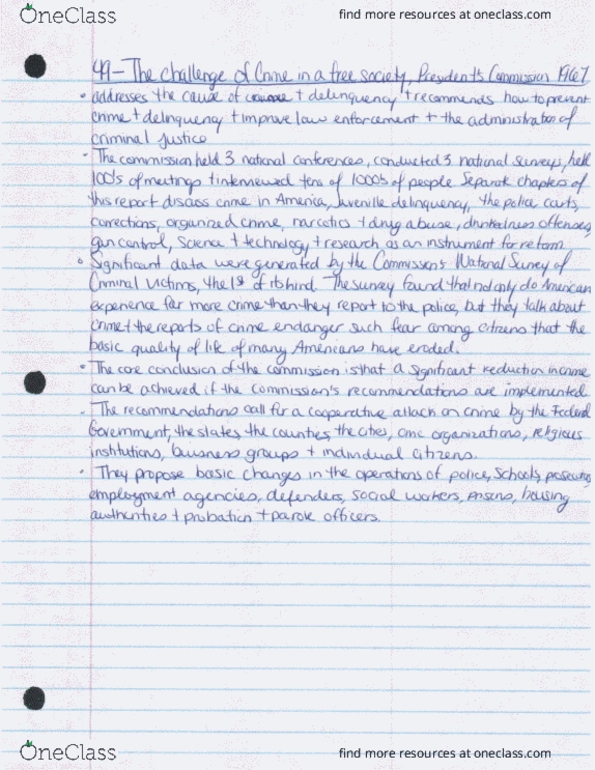 OneClass
find more resources at oneclass.com
49-The Challenge of Crime in a free society, President's Commission 1967
• addresses the cause of crime + delinquency + recommends how to prevent
crime + delinquency + improve law enforcement + the administration of
criminal justice
• The commission held 3 national conferences, conducted 3 national surveys, held
100's of meetings + interviewed tens of 1000's of people Separate chapters of
this report discuss crime in America, juvenille delinquency, the police, courts,
corrections, organized crime, narcotics + drug abuse, drunkedness offenses,
gun control, science + technology + research as an instrument for reform
• Significant data were generated by the Commission's National Survey of
Criminal Victims, the 1st of its kind. The survey found that not only do American
experience far more crime than they report to the police, but they talk about
crime + the reports of crime endanger such fear among citizens that the
basic quality of life of many Americans have eroded.
• The core conclusion of the commission is that a significant reduction in crime
can be achieved if the commission's recommendations are implemented
• The recommendations call for a cooperative attack on crime by the Federal
Government, the states, the counties, the cities, civic organizations, religious
institutions, business groups + individual citizens.
• They propose basic changes in the operations of police, schools, prosecutors
employment agencies, defenders, social workers, prisons, housing
authorities + probation + parole officers.
OneClass
find more resources at oneclass.com